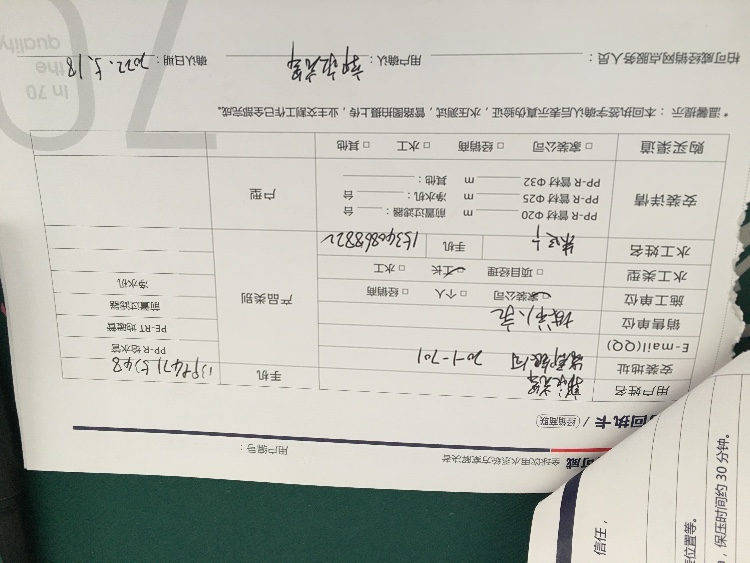 可威 全球饮用水系统方案解决者
用户编号：
回执卡 / 经销商联
用户姓名 手机
安装地址 20-1-701
E-mail(QQ) PP-R 给水管
销售单位 PE-RT 地暖管
施工单位 □ 家装公司 □ 个人 □ 经销商 产品类别 前置过滤器
水工类型 □ 项目经理 □ 工长 □ 水工 净水机
水工姓名 手机 15340868822
安装详情 PP-R 管材 Φ20 m 前置过滤器： 台 户型
PP-R 管材 Φ25 m 净水机： 台
PP-R 管材 Φ32 m 其他：
购买渠道 □ 家装公司 □ 经销商 □ 水工 □ 其他
*温馨提示：本回执签字确认后表示真伪验证，水压测试，管路图拍摄上传，业主交割工作已全部完成。
柏可威经销网点服务人员： 用户确认： 确认日期：2022.5.18
In 70
the
quality
信任，
位置等。
，保压时间约 30 分钟。